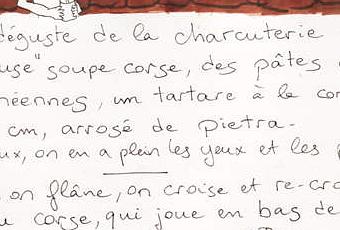 déguste de la charcuterie
use" soupe corse, des pâtes
néennes, un tartare à la cor
cm, arrosé de pietra-
ux, on en a plein les yeux et les
on flâne, on croise et re-cro
corse, qui joue en bas de